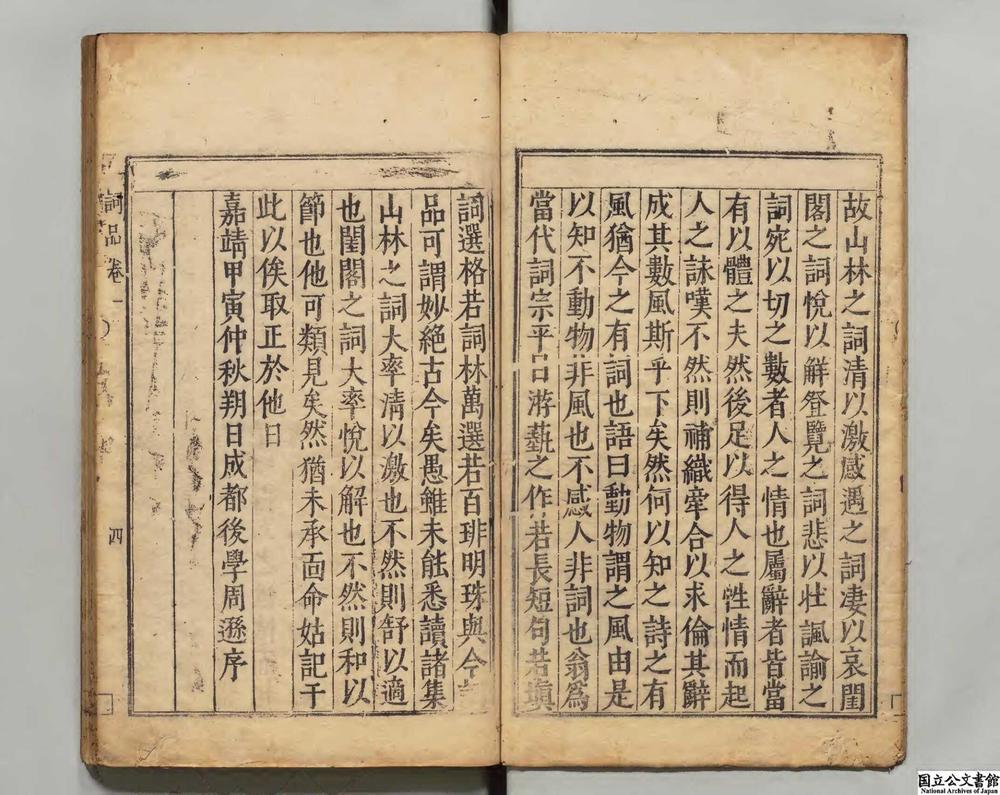 故山林之詞清以激感遇之詞凄以哀閨
閣之詞悅以解登覽之詞悲以壯諷諭之
詞宛以切之數者人之情也屬辭者皆當
有以體之夫然後足以得人之性情而起
人之詠嘆不然則補織牽合以求倫其辭
成其數風斯乎下矣然何以知之詩之有
風猶今之有詞也語曰動物謂之風由是
以知不動物非風也不感人非詞也翁為
當代詞宗平日游藝之作若長短句若填
詞選格若詞林萬選若百琲明珠與今
品可謂妙絕古今矣愚雖未能悉讀諸集
山林之詞大率清以激也不然則舒以適
也閨閣之詞大率悅以解也不然則和以
節也他可類見矣然猶未承面命姑記于
此以俟取正於他日
嘉靖甲寅仲秋朔日成都後學周遜序
詞品卷一
四
国立公文書館
National Archives of Japan